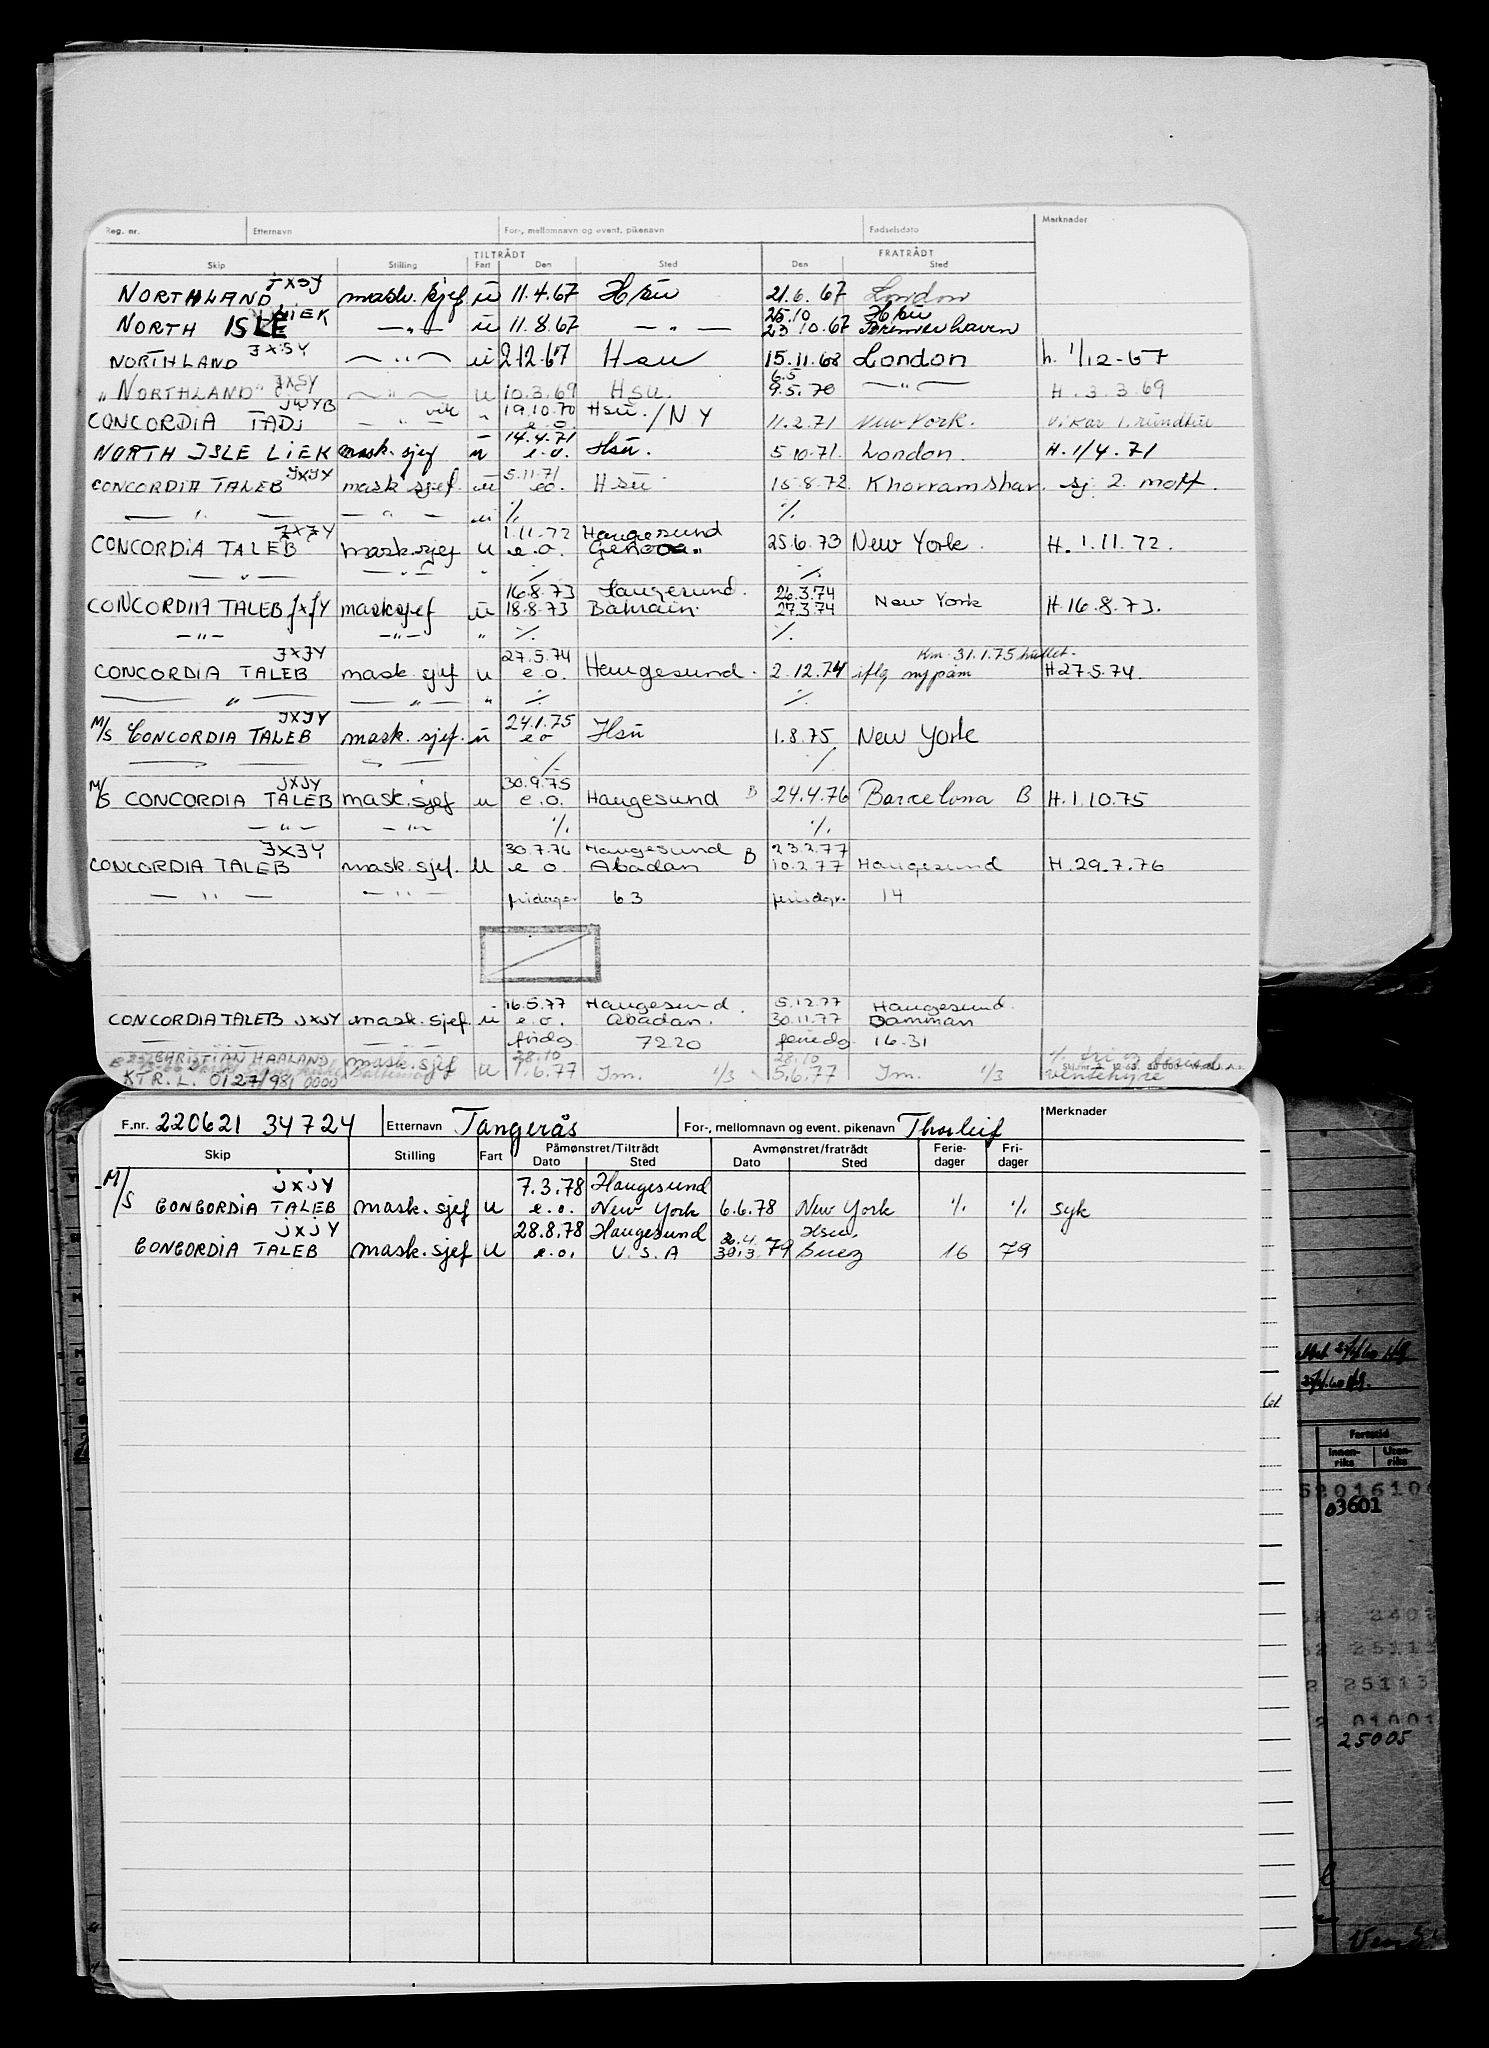 Reg. nr. Etternavn For-, mellomnavn og event. pikenavn Fødselsdato Merknader
TILTRÅDT FRATRÅDT
Skip Stilling Fart Den Sted Den Sted
JXSY
NORTHLAND mask. sjef ü 11.4.67 Hsu 21.6.67 London
LIEK 25.10 Hsu
NORTH ISLE — " — ü 11.8.67 — " — 23 10.67 Bremerhaven
JXSY
NORTHLAND — " — ü 2.12.67 Hsu 15.11.68 London h. 1/12-67
JXSY 6.5
"NORTHLAND" — " — u 10.3.69 Hsu. 9.5.70 — " — H. 3.3.69
JWYB vik 19.10.70 Hsu. / N Y
CONCORDIA TADJ — " — " e.o. 11.2.71 New York. Vikar 1. rundtur
14.4.71
NORTH ISLE LIEK mask. sjef u e.o. Hsü. 5.10.71. London. H. 1/4.71
JXJY 5.11.71
CONCORDIA TALEB mask sjef. u eo. Hsü 15.8.72 Khorramshar. sj. 2. mott.
— " — — " — ui % %
JXJY 1.11.72 Haugesund
CONCORDIA TALEB mask.sjef u e.o. Genoa 25.6.73 New York. H. 1.11.72.
— " — — " — " % %
16.8.73 Haugesund. 26.3.74
CONCORDIA TALEB JXJY mask sjef ü 18.8.73 Bahrain. 27.3.74 New York H.16.8.73.
— " — — " — " % %
JXJY 27.5.74 Km. 31.1.75
CONCORDIA TALEB mask sjef u e.o. Haugesund. 2.12.74 iflg nypåm H27.5.74.
— " — — " — " % %
JXJY 24.1.75
M/S CONCORDIA TALEB mask. sjef. ü e.o Hsü 1.8.75 New York
— " — — " — % %
JXJY 30.9.75
M/S CONCORDIA TALEB mask. sjef u e.o. Haugesund B 24.4.76 Barcelona B H.1.10.75
— " — — " — % %
JXJY 30.7.76 Haugesund 23.2.77
CONCORDIA TALEB mask. sjef. u e.o. Abadan B 10.2.77 Haugesund H.29.7.76
— " — — " — fridager 63 feriedgr. 14
16.5.77 Haugesund. 5.12.77 Haugesund.
CONCORDIA TALEB JXJY mask. sjef. ü e.o. Abadan. 30.11.77 Damman
— " — — " — fridg 7220 feriedg. 16.31
CHRISTIAN HAALAND 28.10 28.10
mask. sjef u 1.6.77 Im. 1/3 5.6.77 Im. 1/3 ventehyre
KTR. L. 0127/981 0000
F.nr. 220621 34724 Etternavn Tangerås For-, mellomnavn og event. pikenavn Thorleif Merknader
Skip Stilling Fart Påmønstret/Tiltrådt Avmønstret/fratrådt Ferie- Fri-
Dato Sted Dato Sted dager dager
M/S JXJY 7.3.78 Haugesund
CONCORDIA TALEB mask. sjef u e.o. New York 6.6.78 New York % % syk
JXJY 28.8.78 Haugesund Hsu.
CONCORDIA TALEB mask. sjef u e.o. U.S.A 30.3.79 Suez 16 79
Fartstid
Innen- Uten-
riks riks
03601
25005